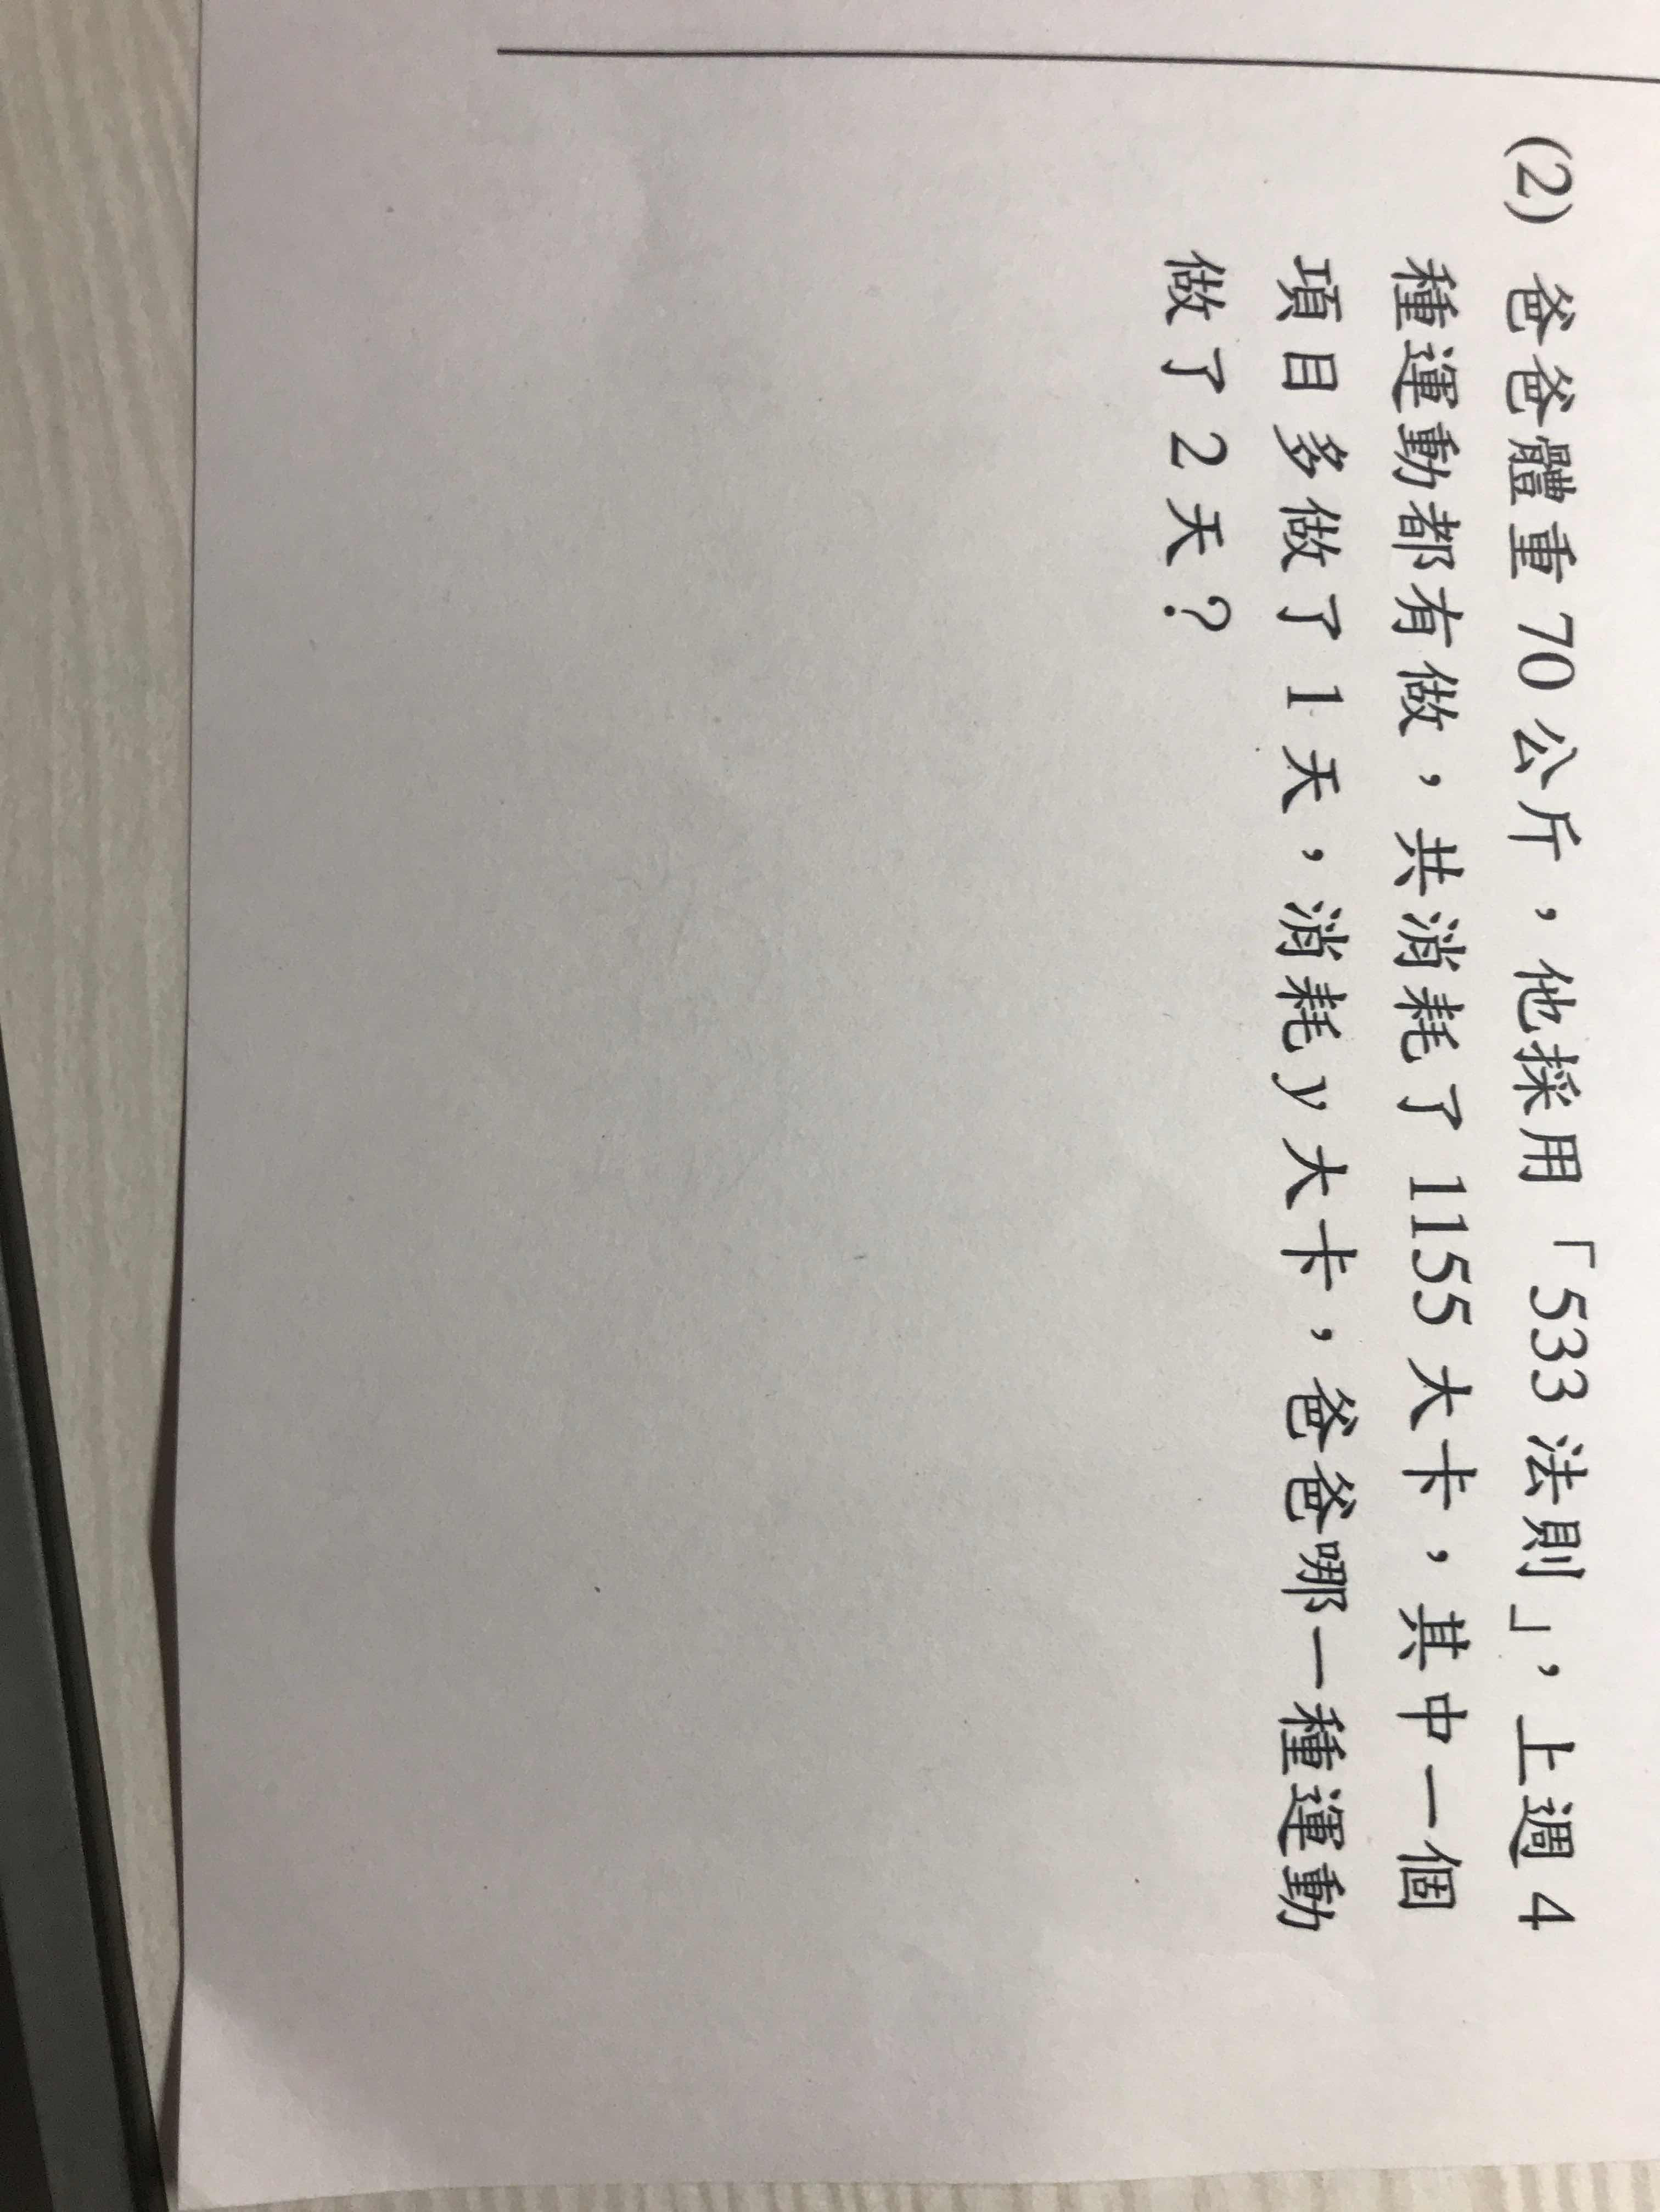 (2) 爸爸體重 70 公斤，他採用「533 法則」，上週 4
種運動都有做，共消耗了 1155 大卡，其中一個
項目多做了 1 天，消耗 y 大卡，爸爸哪一種運動
做了 2 天？